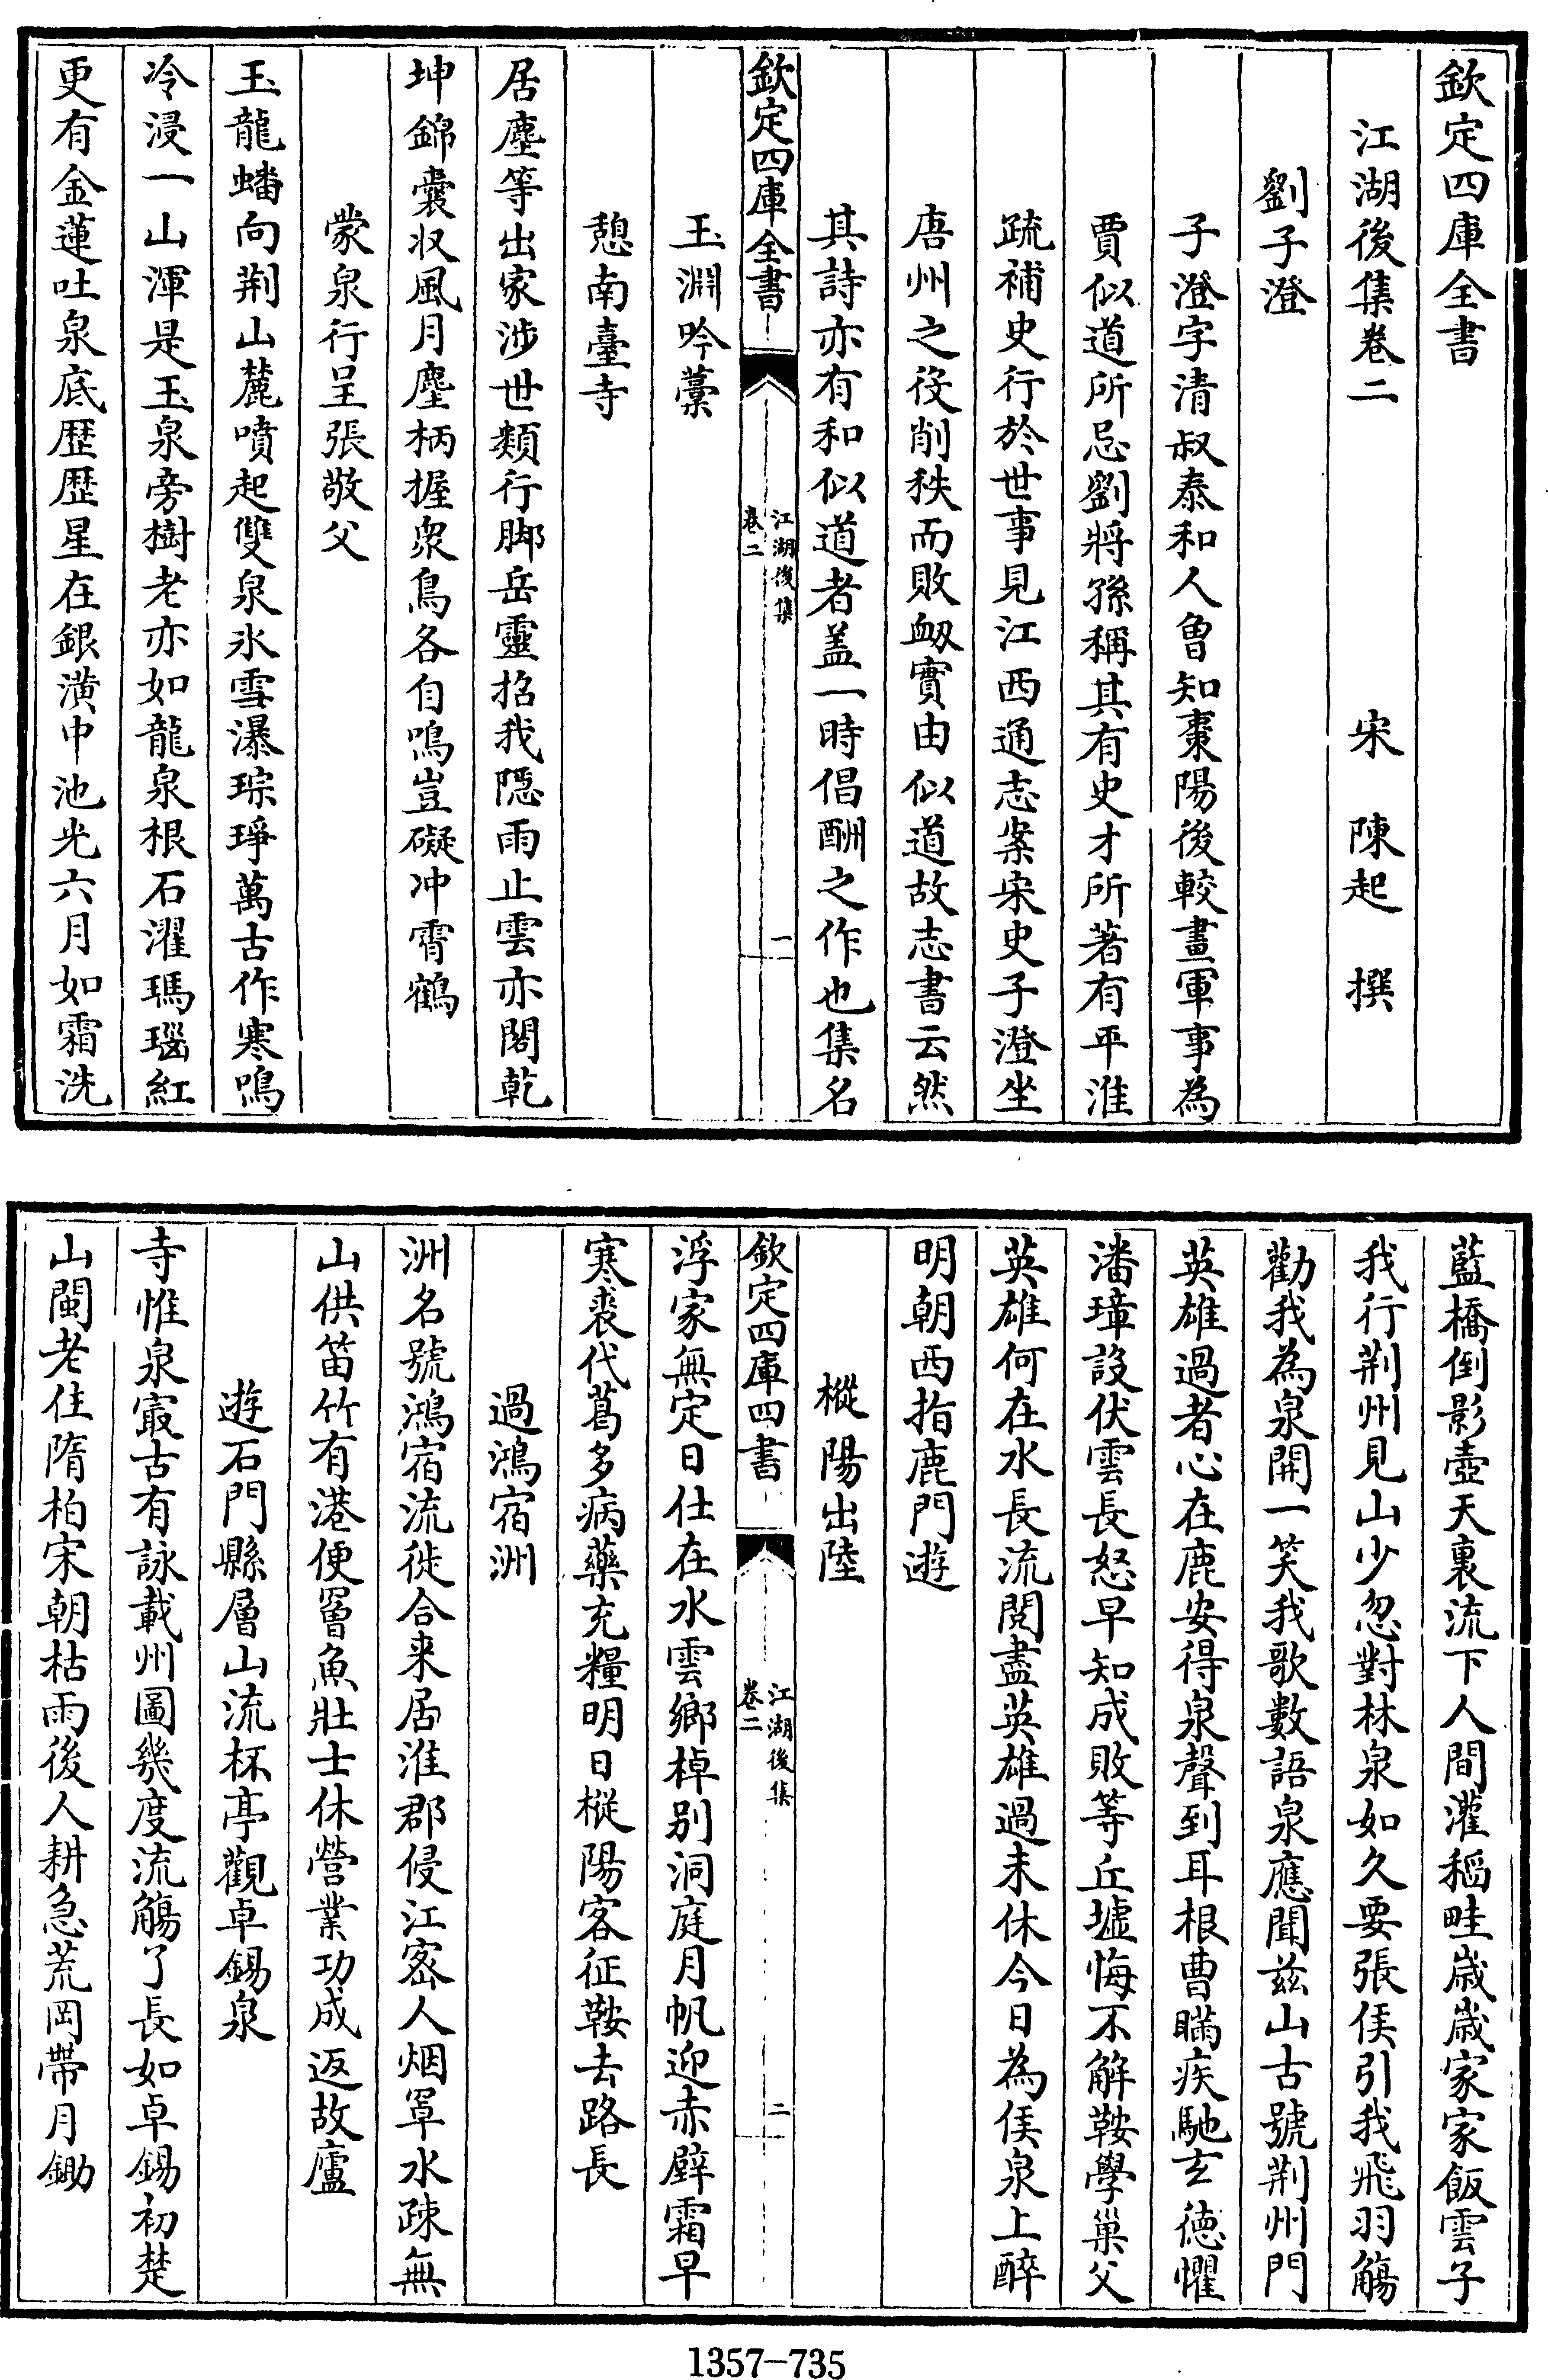 欽定四庫全書
江湖後集卷二
宋 陳起 撰
劉子澄
子澄字清叔泰和人曾知棗陽後較畫軍事為
賈似道所忌劉將孫稱其有史才所著有平淮
疏補史行於世事見江西通志案宋史子澄坐
唐州之役削秩而敗衂實由似道故志書云然
其詩亦有和似道者盖一時倡酬之作也集名
欽定四庫全書
江湖後集
卷二
一
玉淵吟藁
憩南臺寺
居塵等出家涉世類行脚岳靈招我隱雨止雲亦閣乾
坤錦囊収風月麈柄握衆鳥各自鳴豈礙冲霄鶴
蒙泉行呈張敬父
玉龍蟠向荆山麓噴起雙泉氷雪瀑琮琤萬古作寒鳴
冷浸一山渾是玉泉旁樹老亦如龍泉根石濯瑪瑙紅
更有金蓮吐泉底歴歴星在銀潢中池光六月如霜洗
藍橋倒影壺天裏流下人間灌稻畦歳歳家家飯雲子
我行荆州見山少忽對林泉如久要張侯引我飛羽觴
勸我為泉開一笑我歌數語泉應聞兹山古號荆州門
英雄過者心在鹿安得泉聲到耳根曹瞞疾馳玄徳懼
潘璋設伏雲長怒早知成敗等丘墟悔不解鞍學巢父
英雄何在水長流閱盡英雄過未休今日為侯泉上醉
明朝西指鹿門遊
樅陽出陸
欽定四庫四書
江湖後集
卷二
二
浮家無定日仕在水雲鄉棹别洞庭月帆迎赤壁霜早
寒裘代葛多病藥充糧明日樅陽客征鞍去路長
過鴻宿洲
洲名號鴻宿流徙合来居淮郡侵江宻人烟罩水疎無
山供笛竹有港便罾魚壯士休營業功成返故廬
遊石門縣層山流杯亭觀卓錫泉
寺惟泉㝡古有詠載州圖幾度流觴了長如卓錫初楚
山閩老住隋柏宋朝枯雨後人耕急荒岡帶月鋤
1357—735